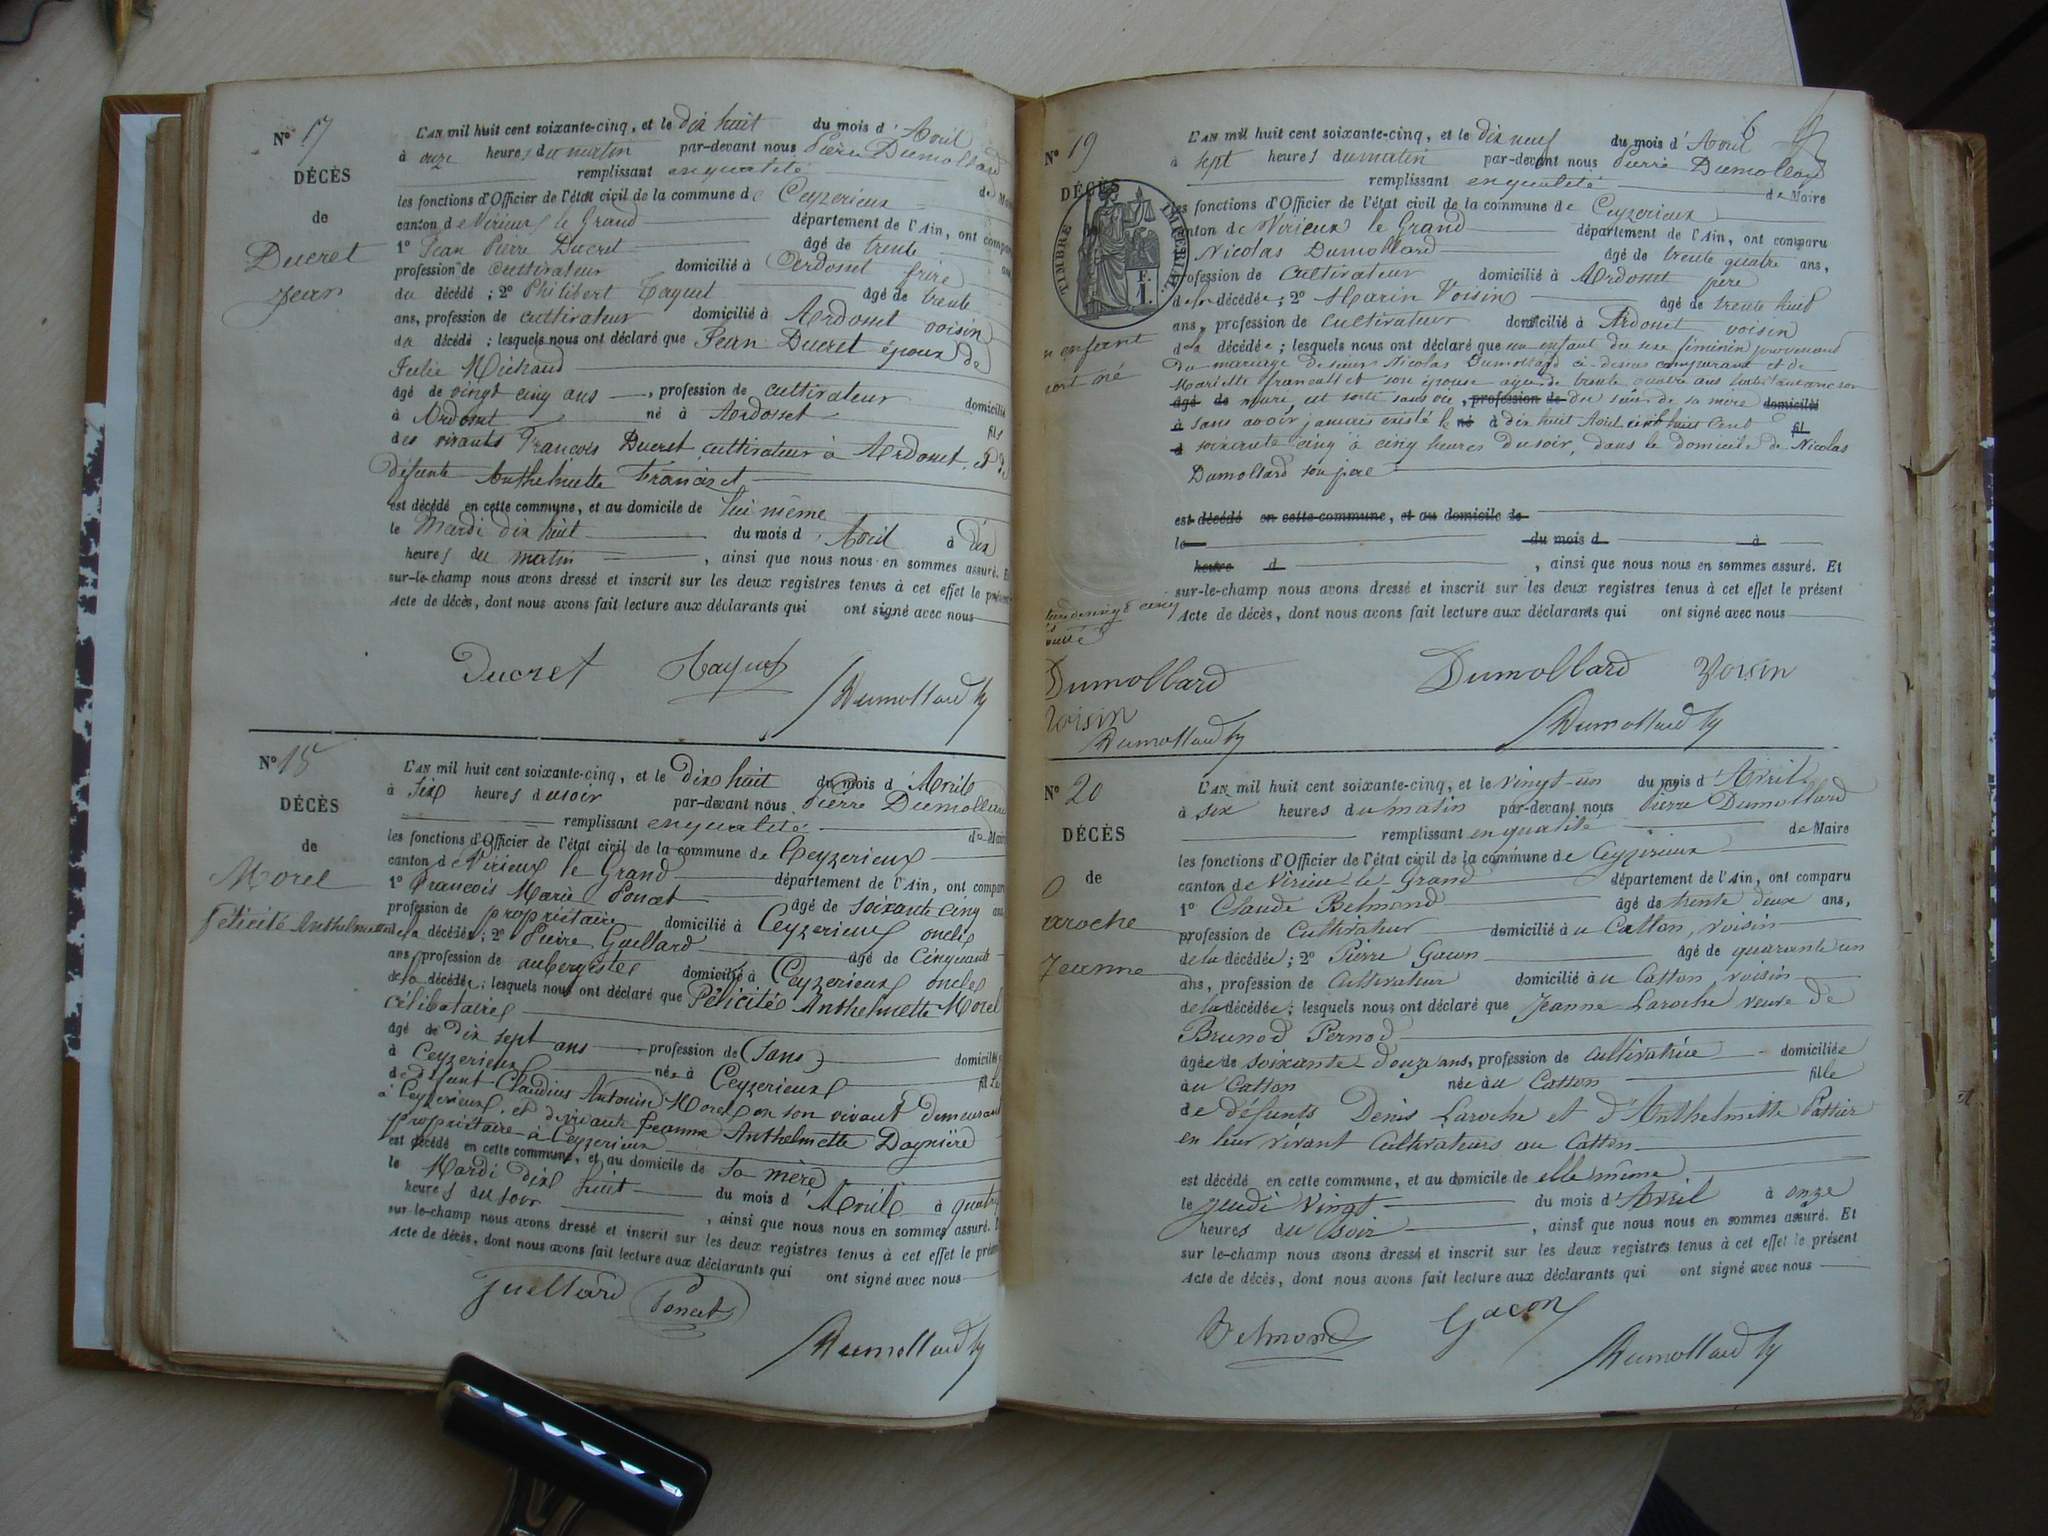 N° 17
DÉCÈS
de
Ducret
Jean
L'AN mil huit cent soixante-cinq, et le dix huit du mois d'Avril
à onze heures du matin par-devant nous Pierre Dumollard
remplissant en qualité de Maire
les fonctions d'Officier de l'état civil de la commune de Ceyzerieux
canton de Virieux le Grand département de l'Ain, ont comparu
1° Jean Pierre Ducret âgé de trente ans,
profession de cultivateur domicilié à Ardosset frère
du décédé ; 2° Philibert Taquet âgé de trente
ans, profession de cultivateur domicilié à Ardosset voisin
du décédé ; lesquels nous ont déclaré que Jean Ducret époux de
Julie Michaud
âgé de vingt cinq ans, profession de cultivateur domicilié
à Ardosset né à Ardosset fils
des vivants François Ducret cultivateur à Ardosset, et de
défunte Anthelmette Francizet
est décédé en cette commune, et au domicile de lui même
le Mardi dix huit du mois d'Avril à dix
heures du matin, ainsi que nous nous en sommes assuré. Et
sur-le-champ nous avons dressé et inscrit sur les deux registres tenus à cet effet le présent
Acte de décès, dont nous avons fait lecture aux déclarants qui ont signé avec nous
Ducret Taquet
Dumollard
N° 18
DÉCÈS
de
Morel
Félicité Anthelmette
L'AN mil huit cent soixante-cinq, et le Dix huit du mois d'Avril
à six heures du soir par-devant nous Pierre Dumollard
remplissant en qualité de Maire
les fonctions d'Officier de l'état civil de la commune de Ceyzerieux
canton de Virieux le Grand département de l'Ain, ont comparu
1° François Marie Poncet âgé de soixante cinq ans
profession de propriétaire domicilié à Ceyzerieux oncle
de la décédée ; 2° Pierre Guillard âgé de Cinquante
ans, profession de aubergiste domicilié à Ceyzerieux oncle
de la décédée ; lesquels nous ont déclaré que Félicité Anthelmette Morel
célibataire
âgé de dix sept ans profession de (sans) domiciliée
à Ceyzerieux née à Ceyzerieux fille
de défunt Claudius Antoine Morel en son vivant demeurant
à Ceyzerieux, et de vivante Jeanne Anthelmette Dagnière
propriétaire à Ceyzerieux
est décédé en cette commune, et au domicile de sa mère
le Mardi dix huit du mois d'Avril à quatre
heures du soir, ainsi que nous nous en sommes assuré. Et
sur-le-champ nous avons dressé et inscrit sur les deux registres tenus à cet effet le présent
Acte de décès, dont nous avons fait lecture aux déclarants qui ont signé avec nous
Guillard Poncet
Dumollard
6
N° 19
DÉCÈS
TIMBRE IMPÉRIAL
F.
1.
enfant
mort né
L'AN mil huit cent soixante-cinq, et le Dix neuf du mois d'Avril
à sept heures du matin par-devant nous Pierre Dumollard
remplissant en qualité de Maire
les fonctions d'Officier de l'état civil de la commune de Ceyzerieux
canton de Virieux le Grand département de l'Ain, ont comparu
Nicolas Dumollard âgé de trente quatre ans,
profession de Cultivateur domicilié à Ardosset père
de la décédée ; 2° Marin Voisin âgé de trente huit
ans, profession de Cultivateur domicilié à Ardosset voisin
de la décédée ; lesquels nous ont déclaré que un enfant du sexe féminin provenant
du mariage de sieur Nicolas Dumollard ci-dessus comparant et de
Mariette Francett et son épouse agée de trente quatre ans
âgé de est sorti sans vie, profession de du sein de sa mère domicilié
à sans avoir jamais existé le né à dix huit Avril mil huit Cent fil
d soixante cinq à cinq heures du soir, dans le domicile de Nicolas
Dumollard son père
est décédé en cette commune, et au domicile de
le du mois d à
heure d, ainsi que nous nous en sommes assuré. Et
sur-le-champ nous avons dressé et inscrit sur les deux registres tenus à cet effet le présent
Acte de décès, dont nous avons fait lecture aux déclarants qui ont signé avec nous
Dumollard
Voisin
Dumollard
Dumollard Voisin
Dumollard
N° 20
DÉCÈS
de
Laroche
Jeanne
L'AN mil huit cent soixante-cinq, et le vingt-un du mois d'Avril
à six heures du matin par-devant nous Pierre Dumollard
remplissant en qualité de Maire
les fonctions d'Officier de l'état civil de la commune de Ceyzerieux
canton de Virieu-le-Grand département de l'Ain, ont comparu
1° Claude Belmond âgé de trente deux ans,
profession de Cultivateur domicilié au Catton, voisin
de la décédée ; 2° Pierre Gacon âgé de quarante un
ans, profession de Cultivateur domicilié au Catton voisin
de la décédée ; lesquels nous ont déclaré que Jeanne Laroche veuve de
Brunod Pernod
âgée de soixante douze ans, profession de cultivatrice domiciliée
au Catton née au Catton fille
de défunts Denis Laroche et d'Anthelmette Pattier
en leur vivant Cultivateurs au Catton
est décédé en cette commune, et au domicile de elle même
le jeudi vingt du mois d'Avril à onze
heures du soir, ainsi que nous nous en sommes assuré. Et
sur-le-champ nous avons dressé et inscrit sur les deux registres tenus à cet effet le présent
Acte de décès, dont nous avons fait lecture aux déclarants qui ont signé avec nous
Belmond Gacon
Dumollard